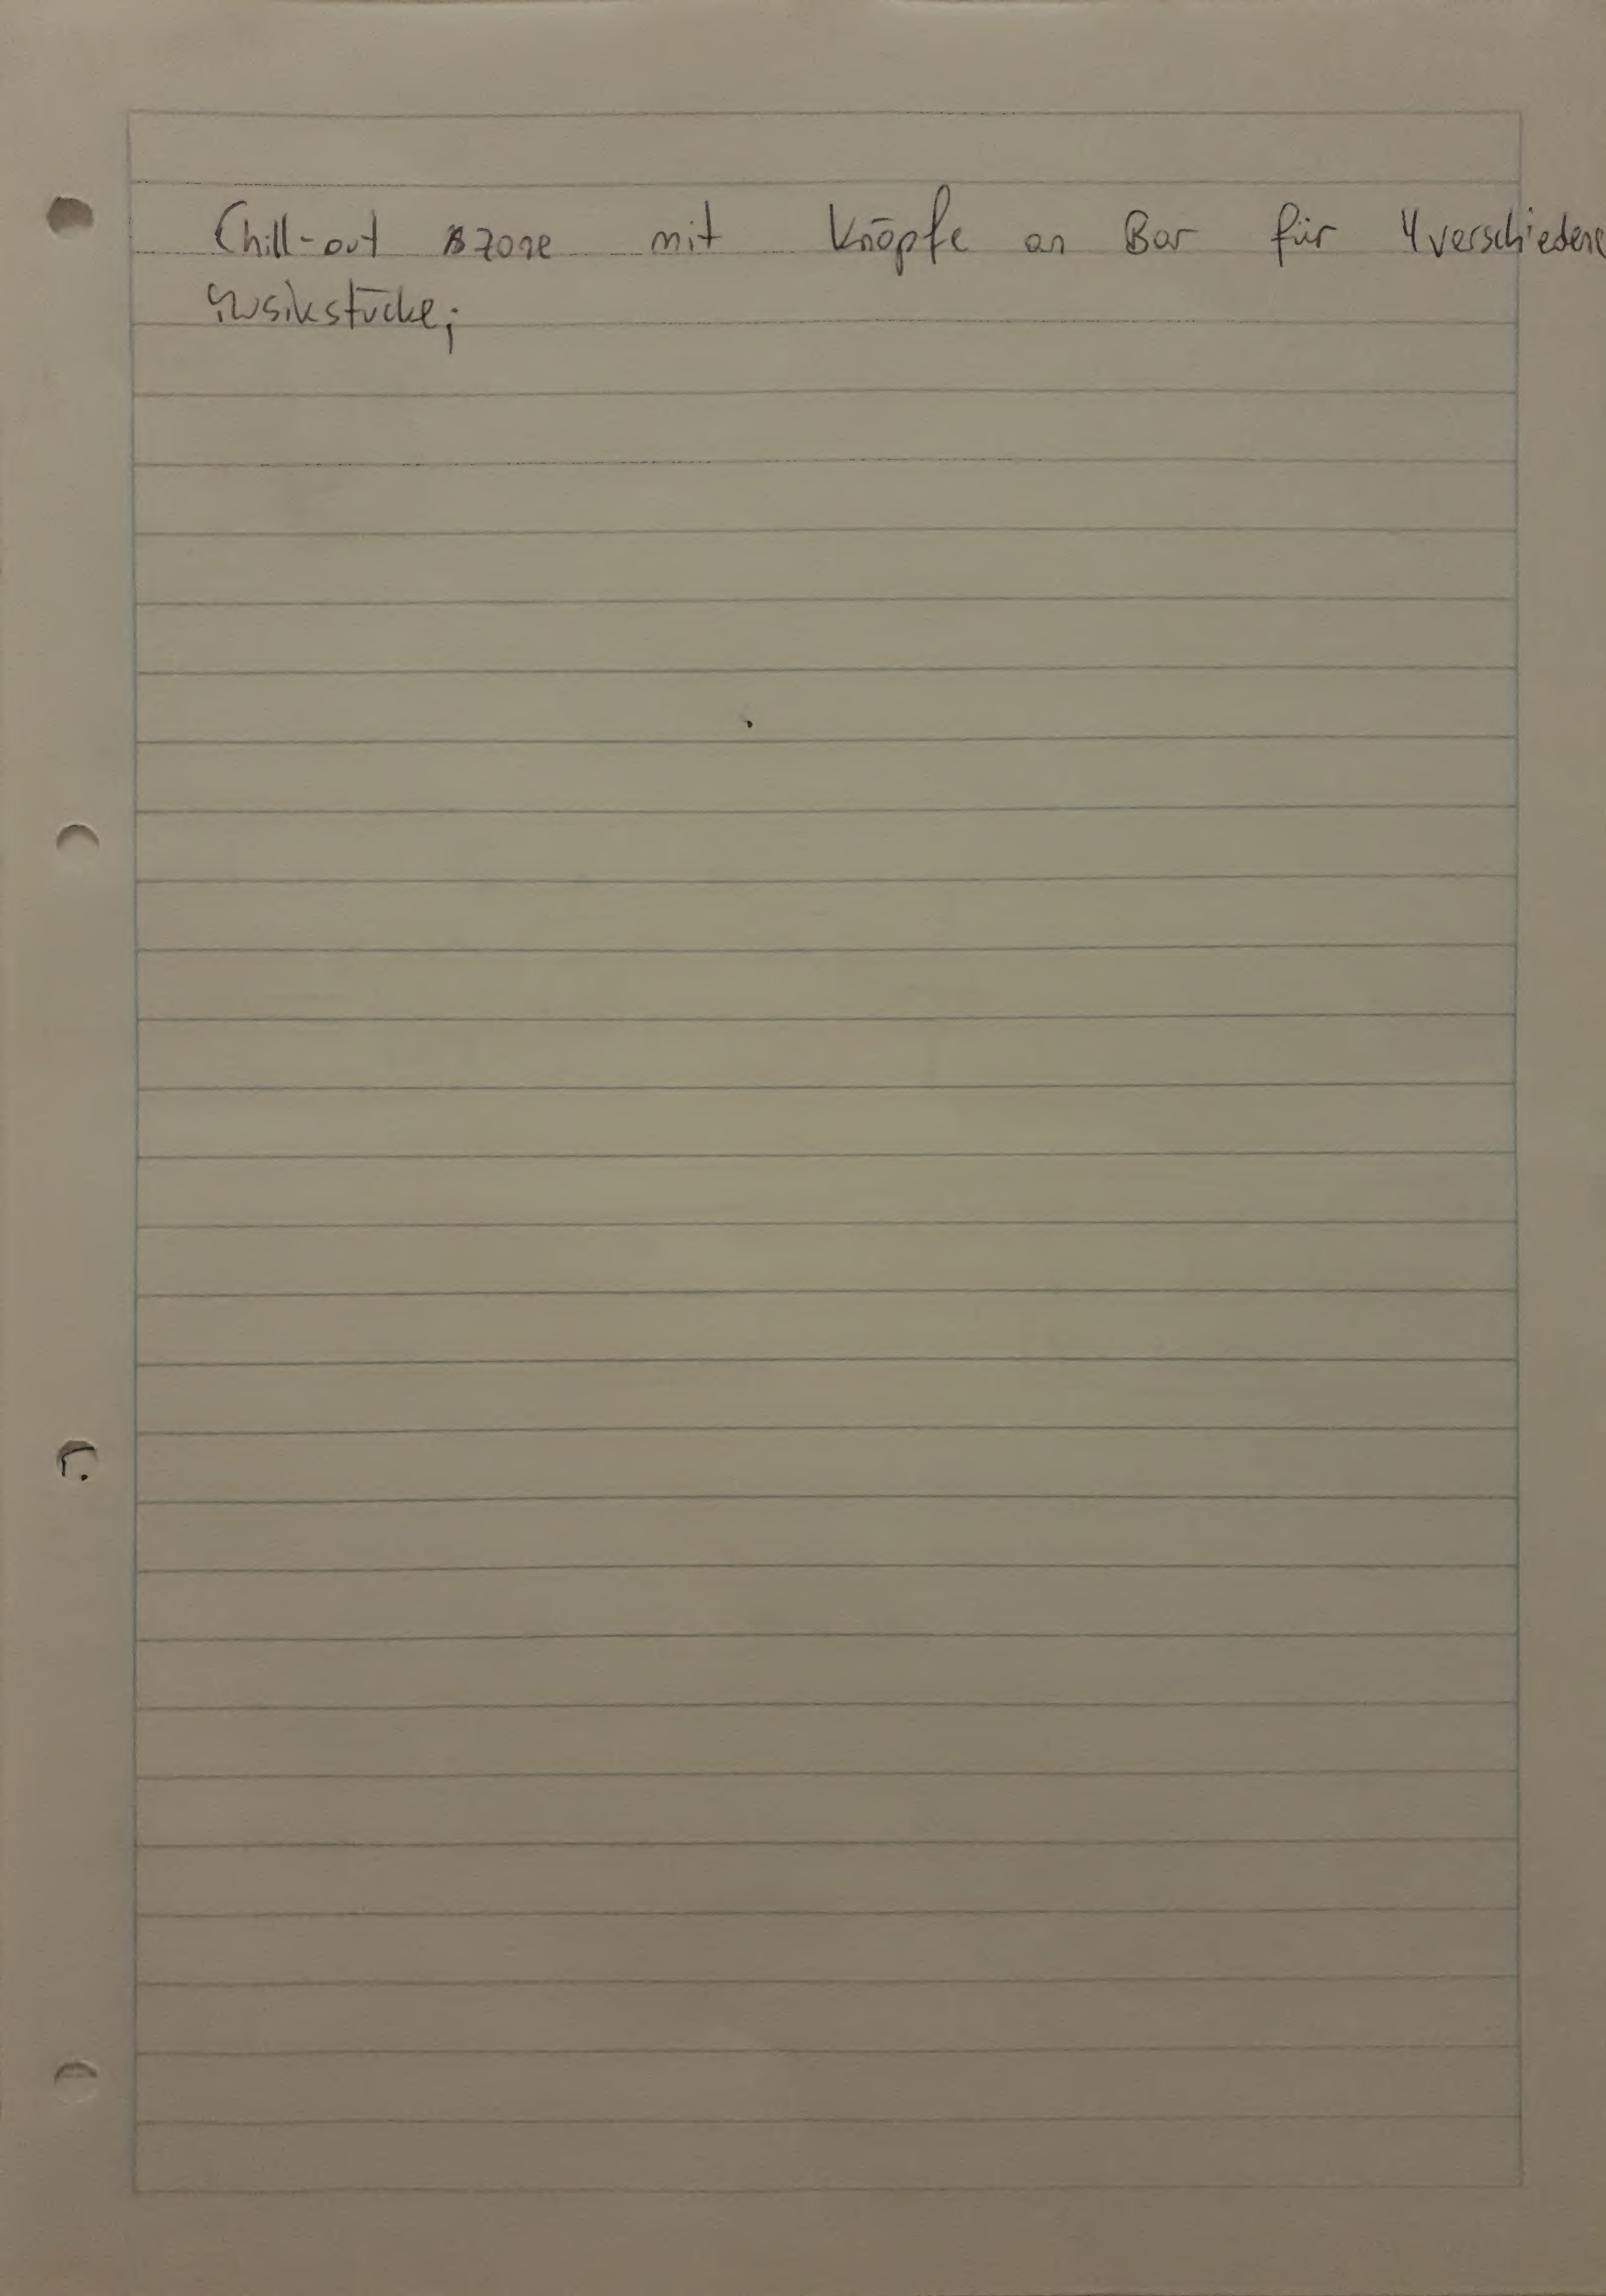 Chill-out Zone mit Knöpfe an Bar für 4 verschiedene
Musikstücke;